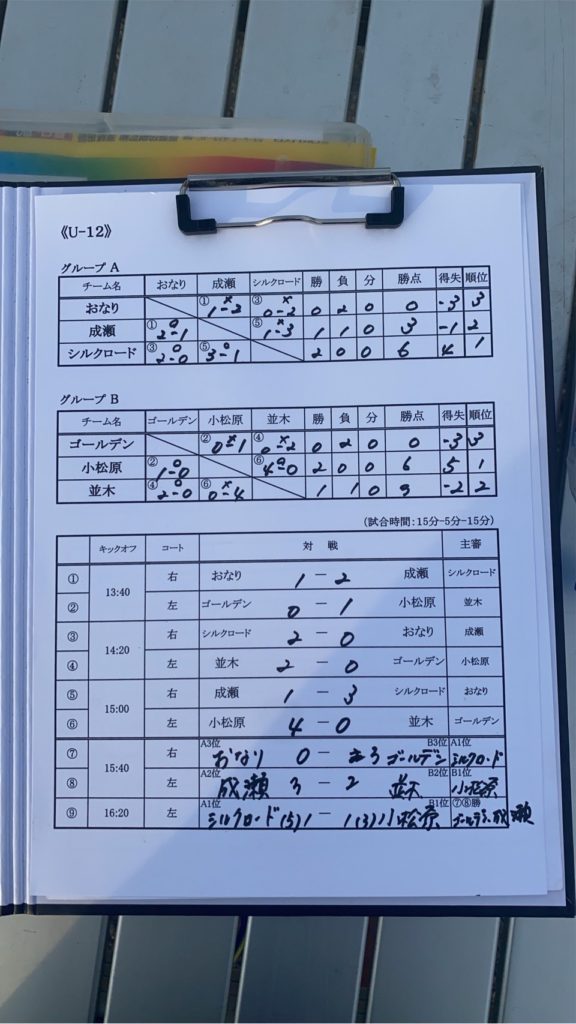 《U-12》
グループ A
チーム名 おなり 成瀬 シルクロード 勝 負 分 勝点 得失 順位
おなり ① × 1-2 ③ × 0-2 0 2 0 0 -3 3
成瀬 ① ○ 2-1 ⑤ × 1-3 1 1 0 3 -1 2
シルクロード ③ ○ 2-0 ⑤ ○ 3-1 2 0 0 6 4 1
グループ B
チーム名 ゴールデン 小松原 並木 勝 負 分 勝点 得失 順位
ゴールデン ② × 0-1 ④ × 0-2 0 2 0 0 -3 3
小松原 ② ○ 1-0 ⑥ ○ 4-0 2 0 0 6 5 1
並木 ④ ○ 2-0 ⑥ × 0-4 1 1 0 3 -2 2
(試合時間:15分-5分-15分)
キックオフ コート 対 戦 主審
① 13:40 右 おなり 1 - 2 成瀬 シルクロード
② 左 ゴールデン 0 - 1 小松原 並木
③ 14:20 右 シルクロード 2 - 0 おなり 成瀬
④ 左 並木 2 - 0 ゴールデン 小松原
⑤ 15:00 右 成瀬 1 - 3 シルクロード おなり
⑥ 左 小松原 4 - 0 並木 ゴールデン
⑦ 15:40 右 A3位 おなり 0 - 3 B3位 ゴールデン A1位 シルクロード
⑧ 左 A2位 成瀬 3 - 2 B2位 並木 B1位 小松原
⑨ 16:20 左 A1位 シルクロード (5) 1 - 1 (3) B1位 小松原 ⑦⑧勝 ゴールデン、成瀬